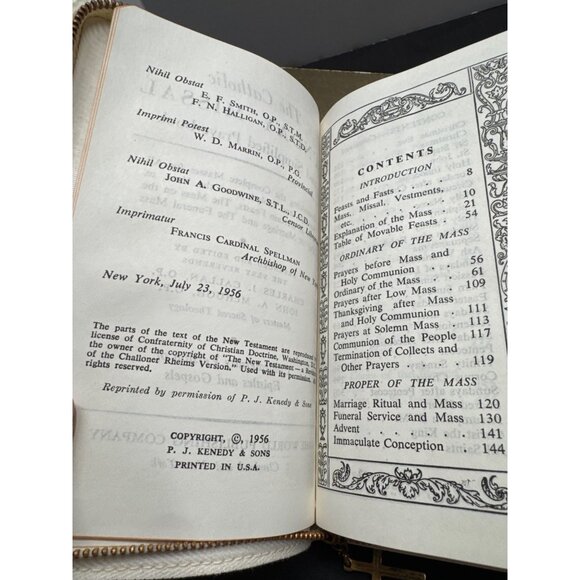 Nihil Obstat
E. F. SMITH, O.P., S.T.M.
F. N. HALLIGAN, O.P., S.T.D.
Imprimi Potest
W. D. MARRIN, O.P., P.G.
Provincial
Nihil Obstat
JOHN A. GOODWINE, S.T.L., J.C.D.
Censor
Imprimatur
FRANCIS CARDINAL SPELLMAN
Archbishop of New
New York, July 23, 1956
The parts of the text of the New Testament are reproduced
license of Confraternity of Christian Doctrine, Washington,
the owner of the copyright of "The New Testament—a
of the Challoner Rheims Version." Used with its permission.
rights reserved.
Reprinted by permission of P. J. Kenedy & Sons
COPYRIGHT, ©, 1956
P. J. KENEDY & SONS
PRINTED IN U.S.A.
CONTENTS
INTRODUCTION
Feasts and Fasts 8
Mass, Missal, Vestments,
etc. 10
Explanation of the Mass 21
Table of Movable Feasts 54
ORDINARY OF THE MASS
Prayers before Mass and
Holy Communion 56
Ordinary of the Mass 61
Prayers after Low Mass 109
Thanksgiving after Mass
and Holy Communion 111
Prayers at Solemn Mass 113
Communion of the People 117
Termination of Collects and
Other Prayers 119
PROPER OF THE MASS
Marriage Ritual and Mass 120
Funeral Service and Mass 130
Advent 141
Immaculate Conception 144